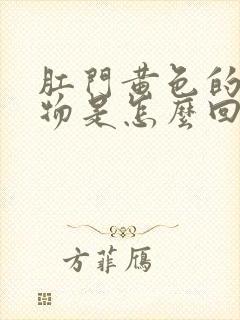 肛門黃色的
物是怎麼回
方菲鴈